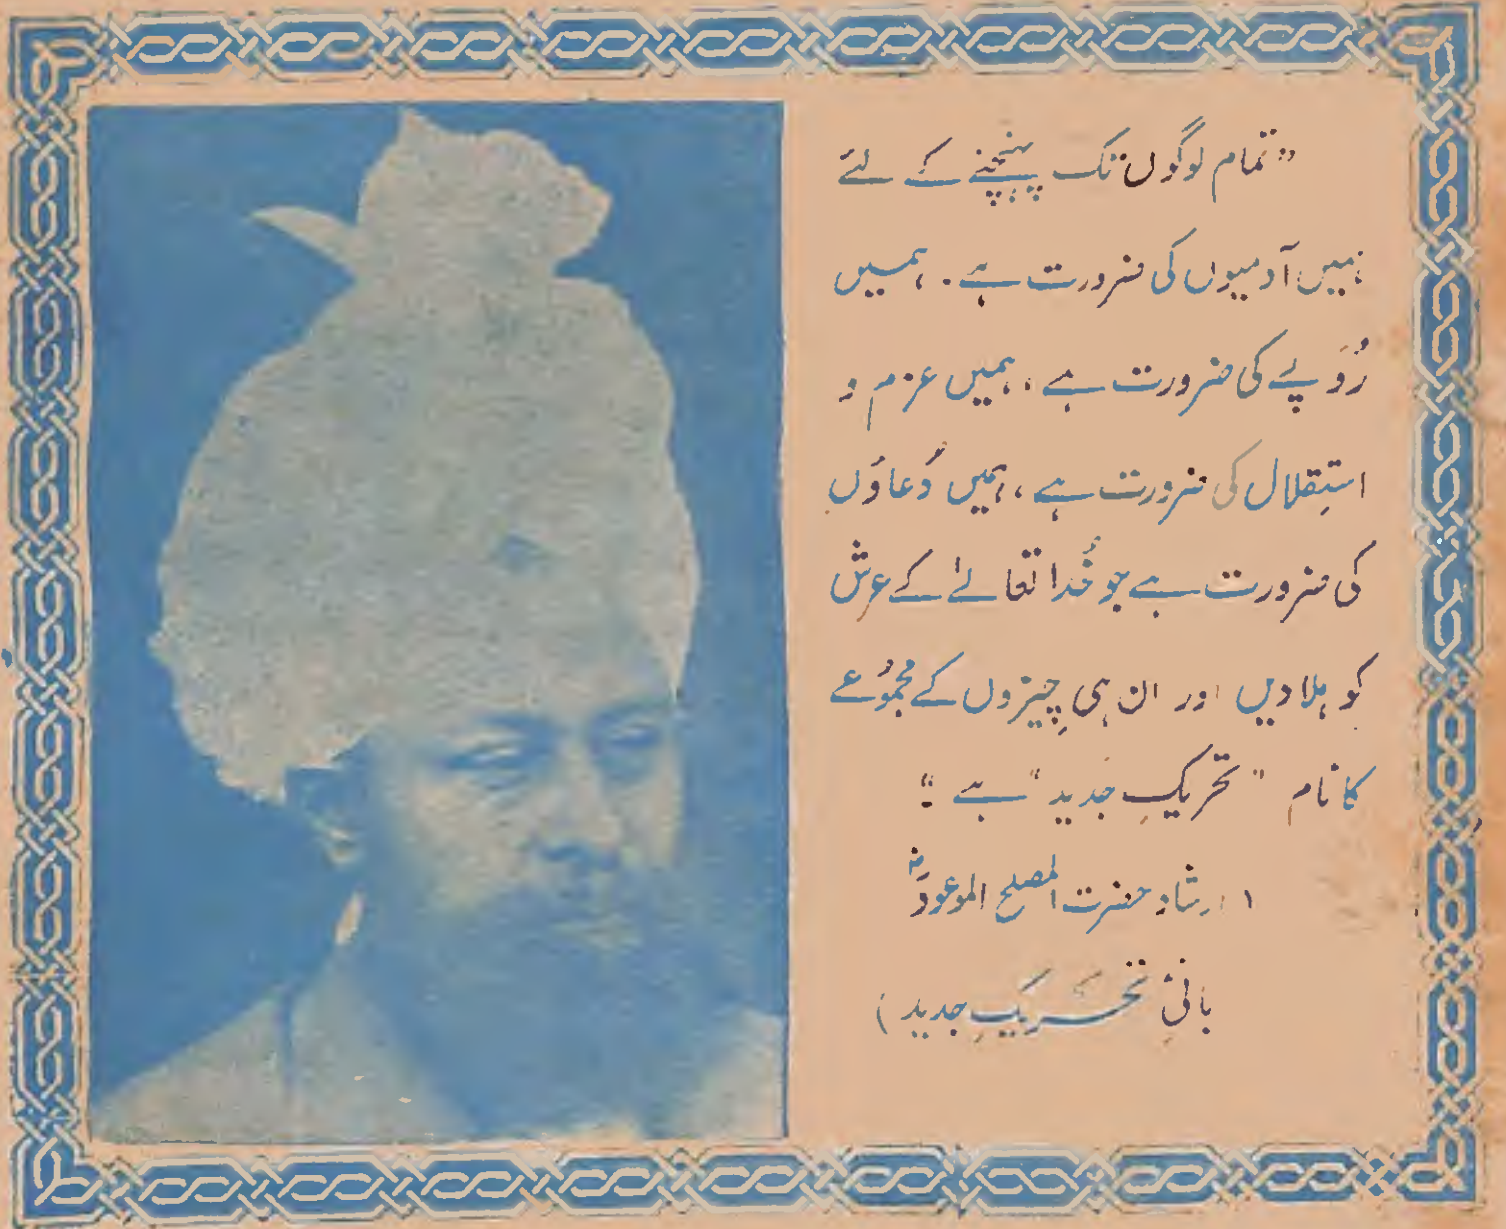 "تمام لوگوں تک پہنچنے کے لئے
ہمیں آدمیوں کی ضرورت ہے۔ ہمیں
رُوپے کی ضرورت ہے، ہمیں عزم و
استِقلال کی ضرورت ہے، ہمیں دُعاؤں
کی ضرورت ہے جو خُدا تعالےٰ کے عرش
کو ہلا دیں اور ان ہی چیزوں کے مجموُعے
کا نام "تحریکِ جَدید" ہے"
(ارشاد حضرت المصلح الموعودؓ
بانیٔ تحریکِ جدید)